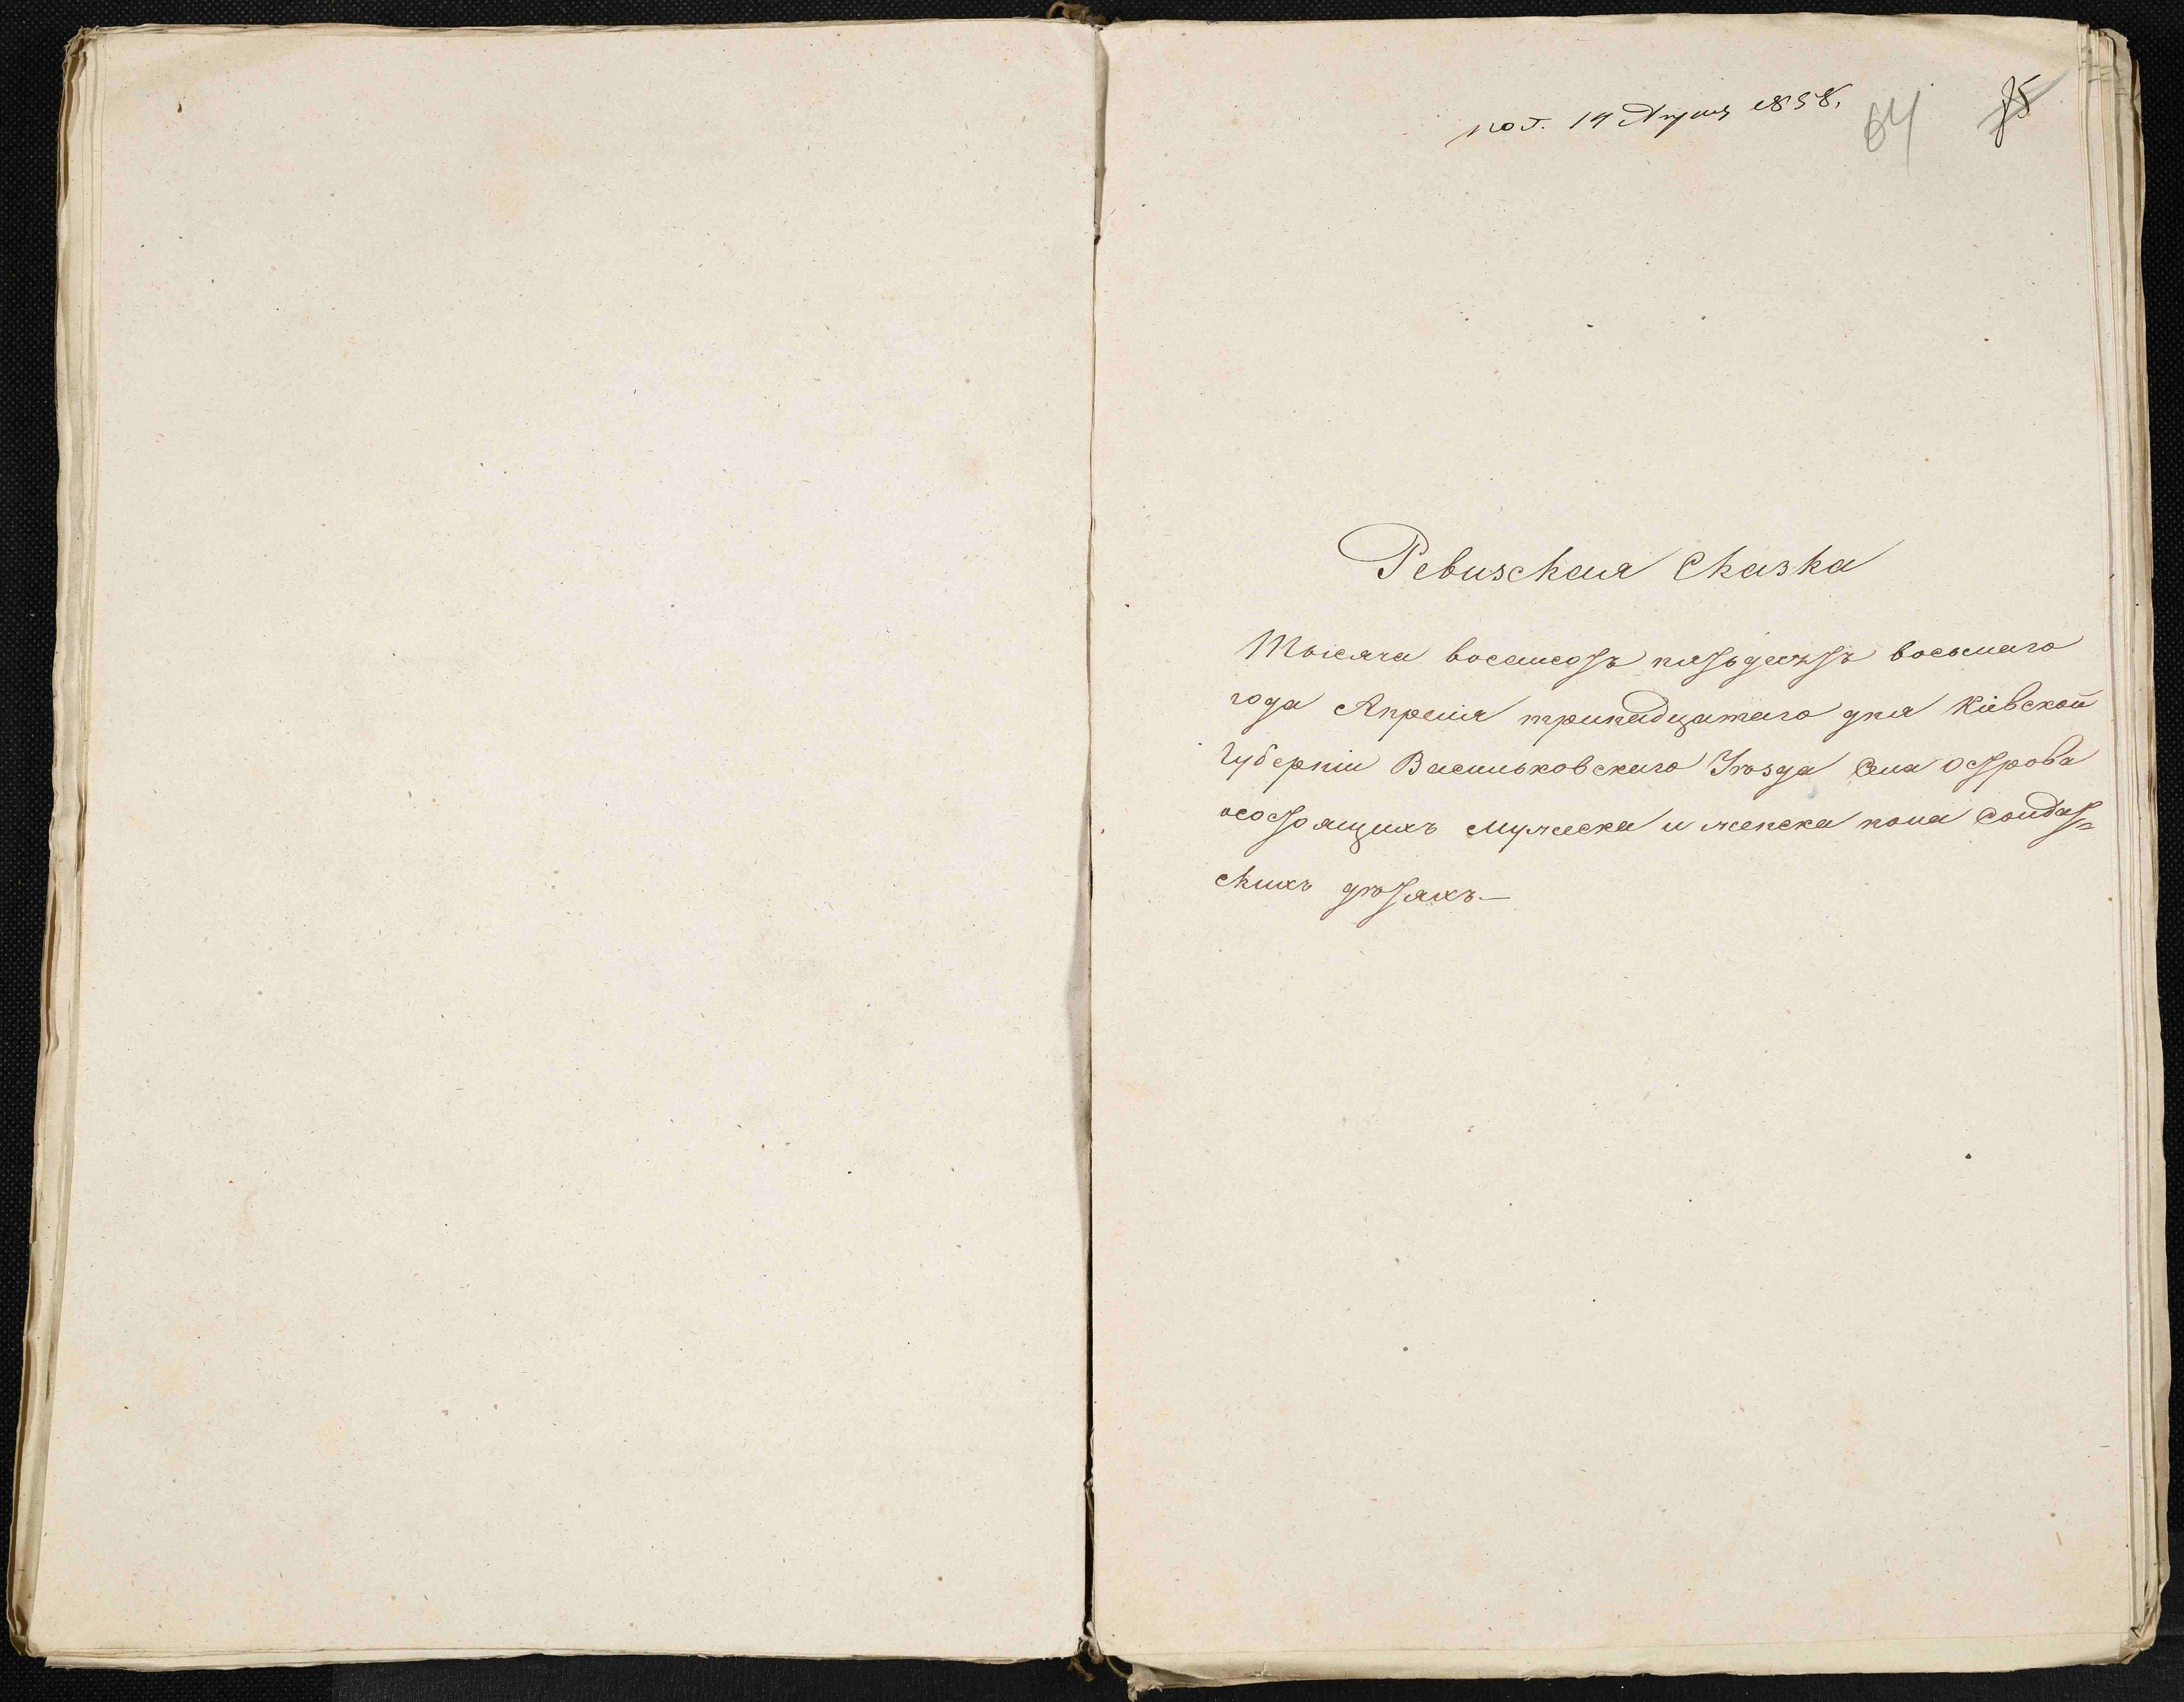 пол. 19 Апреля 1858.
64 75
Ревизская Сказка
Тысяча восемсотъ пятьдесятъ восьмаго
года Апреля тринадцатаго дня Кіевской
Губерніи Васильковскаго Уѣзда Села Острова
осостоящихъ мужеска и женска пола Солдат=
скихъ дѣтяхъ.—